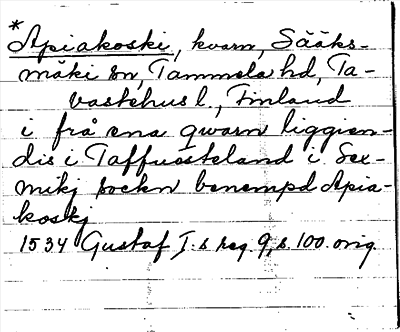 *
Apiakoski, kvarn, Sääks-
mäki sn, Tammela hd, Ta-
vastehus l., Finland
i frå ena qwarn liggien-
dis i Taffuösteland i Sex-
mikj sockn benempd Apia-
koskj
1534 Gustaf I:s reg. 9, s. 100. orig.